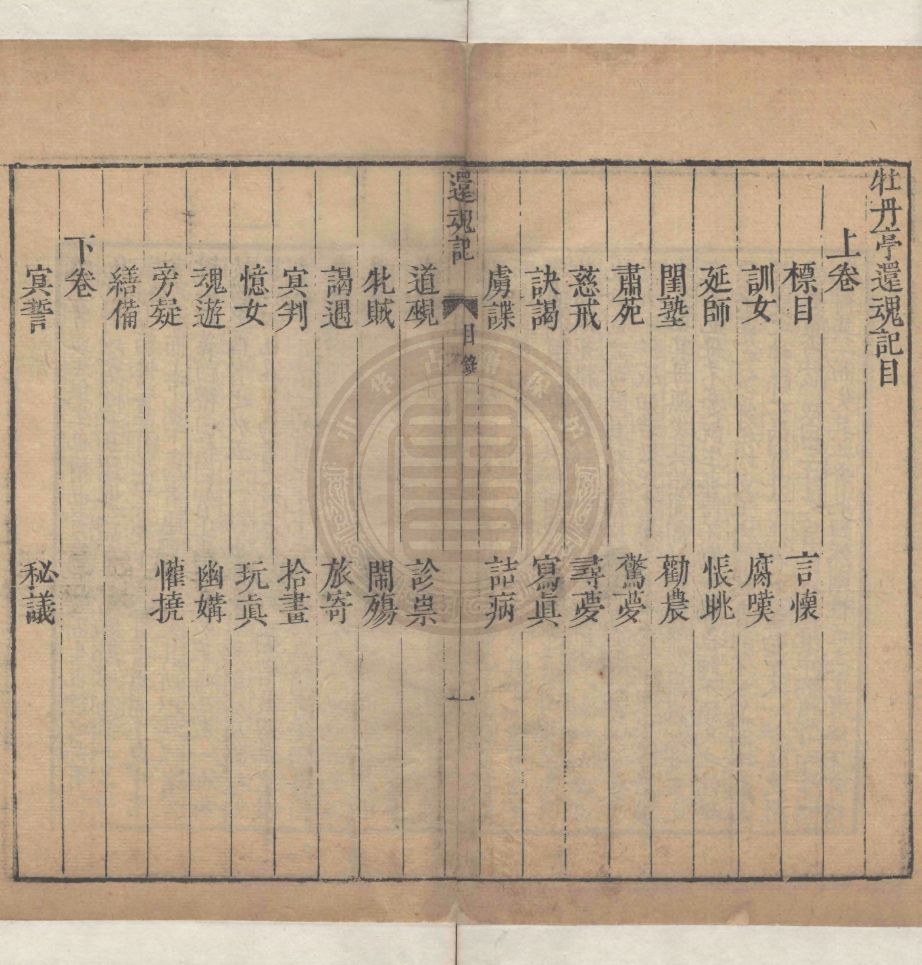 牡丹亭還魂記目
上卷
標目 言懷
訓女 腐嘆
延師 悵眺
閨塾 勸農
肅苑 驚夢
慈戒 尋夢
訣謁 寫眞
虜諜 詰病
還魂記 目錄 一
道覡 診祟
牝賊 鬧殤
謁遇 旅寄
冥判 拾畫
憶女 玩眞
魂遊 幽媾
旁疑 懽撓
繕備
下卷
冥誓 秘議